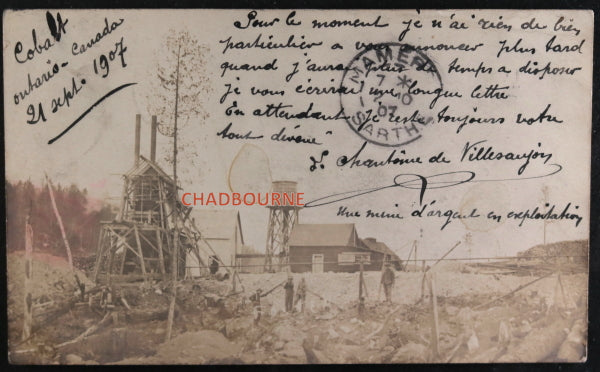 Cobalt
ontario - Canada
21 sept. 1907
Pour le moment je n'ai rien de bien
particulier a vous annoncer plus tard
quand j'aurai plus de temps a disposer
je vous écrirai une longue lettre
En attendant je reste toujours votre
tout dévoué
Chantôme de Villesaujon
Une mine d'argent en exploitation
MAMERS
7 *
10
07
SARTHE
CHADBOURNE